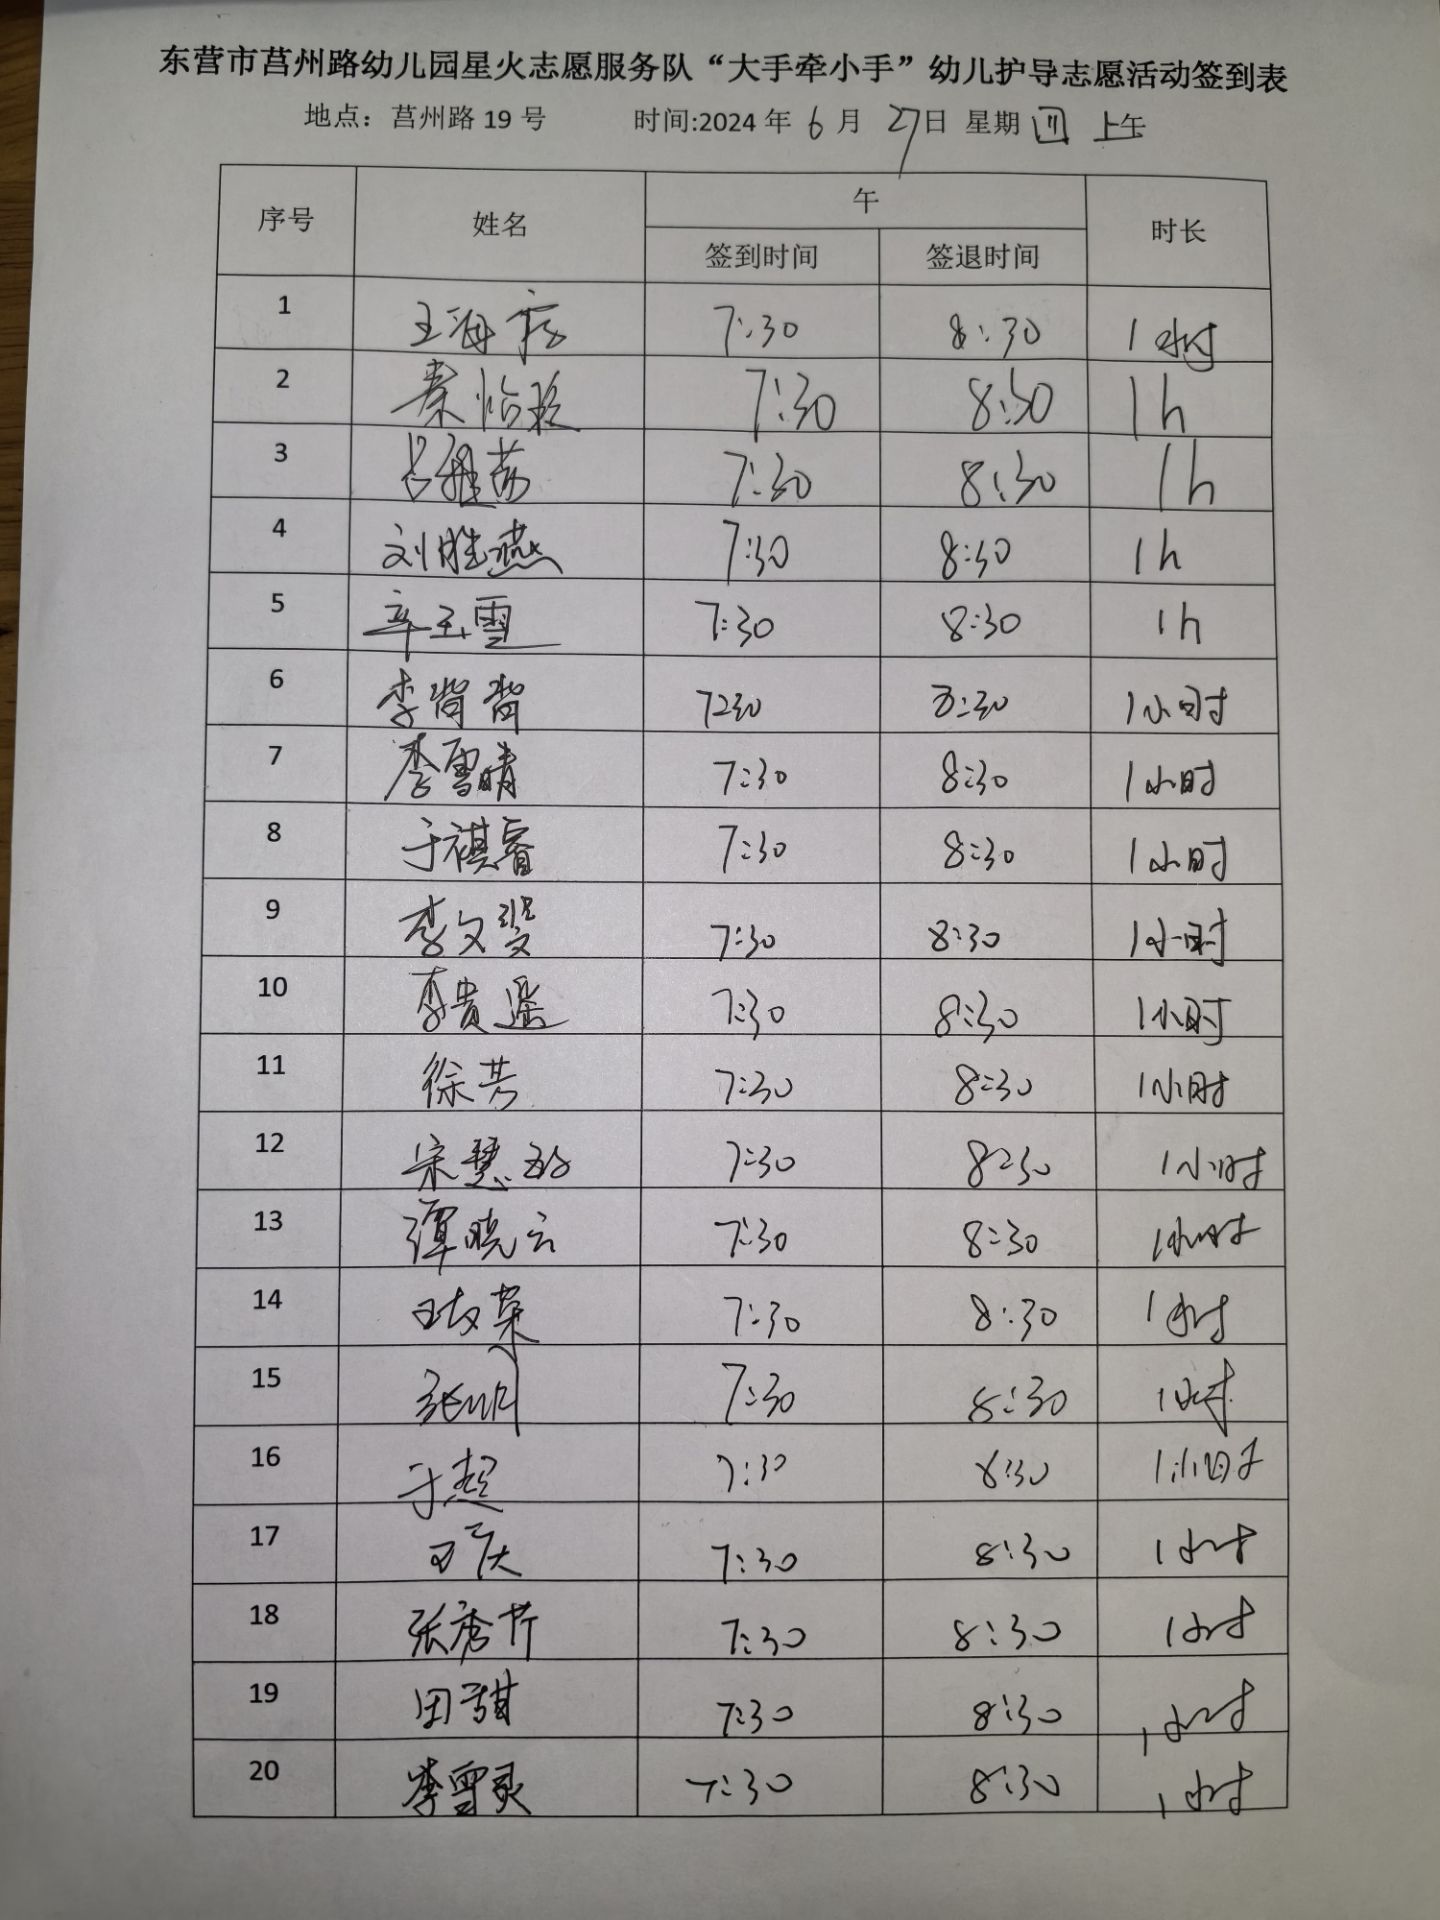 东营市莒州路幼儿园星火志愿服务队“大手牵小手”幼儿护导志愿活动签到表
地点：莒州路 19 号 时间:2024 年 6 月 27日 星期 四 上午
序号 姓名 午 时长
签到时间 签退时间
1 王海 7:30 8:30 1小时
2 秦怡 7:30 8:30 1h
3 吕雅茹 7:30 8:30 1h
4 刘胜燕 7:30 8:30 1h
5 辛玉雪 7:30 8:30 1h
6 李 7:30 8:30 1小时
7 李雪晴 7:30 8:30 1小时
8 于祺睿 7:30 8:30 1小时
9 李文 7:30 8:30 1小时
10 李贵遥 7:30 8:30 1小时
11 徐芳 7:30 8:30 1小时
12 宋慧 7:30 8:30 1小时
13 谭晓云 7:30 8:30 1小时
14 王 7:30 8:30 1小时
15 张明 7:30 8:30 1小时
16 于超 7:30 8:30 1小时
17 王庆 7:30 8:30 1小时
18 张秀芹 7:30 8:30 1小时
19 田甜 7:30 8:30 1小时
20 李雪灵 7:30 8:30 1小时